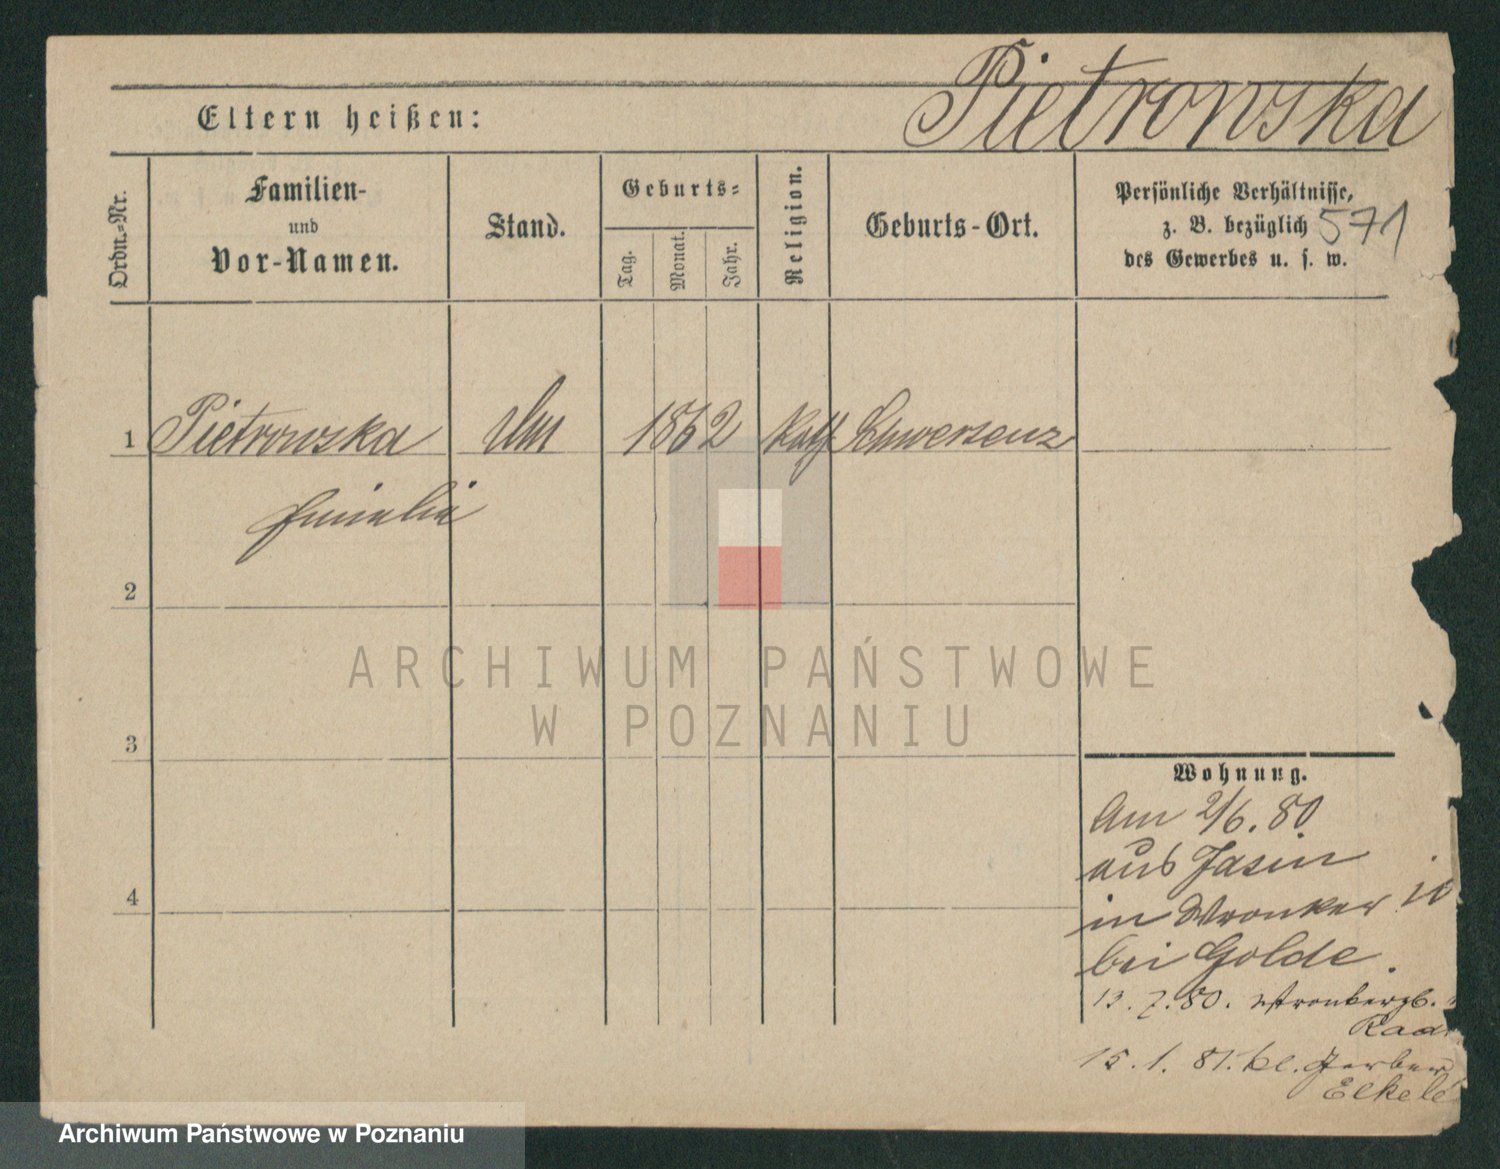 Pietrowska
Eltern heißen:
Ordn.=Nr.
Familien-
und
Vor-Namen.
Stand.
Geburts=
Tag.
Monat.
Jahr.
Religion.
Geburts-Ort.
Persönliche Verhältnisse,
z. B. bezüglich
des Gewerbes u. s. w.
571
1 Pietrowska 1862 Kath Schwersenz
2
3
4
ARCHIWUM PAŃSTWOWE
W POZNANIU
Wohnung.
Am 2/6. 80
aus Jasin
in Wronker
bei Golde.
13. 7. 80.
15. 1. 81. kl. Gerber
Archiwum Państwowe w Poznaniu